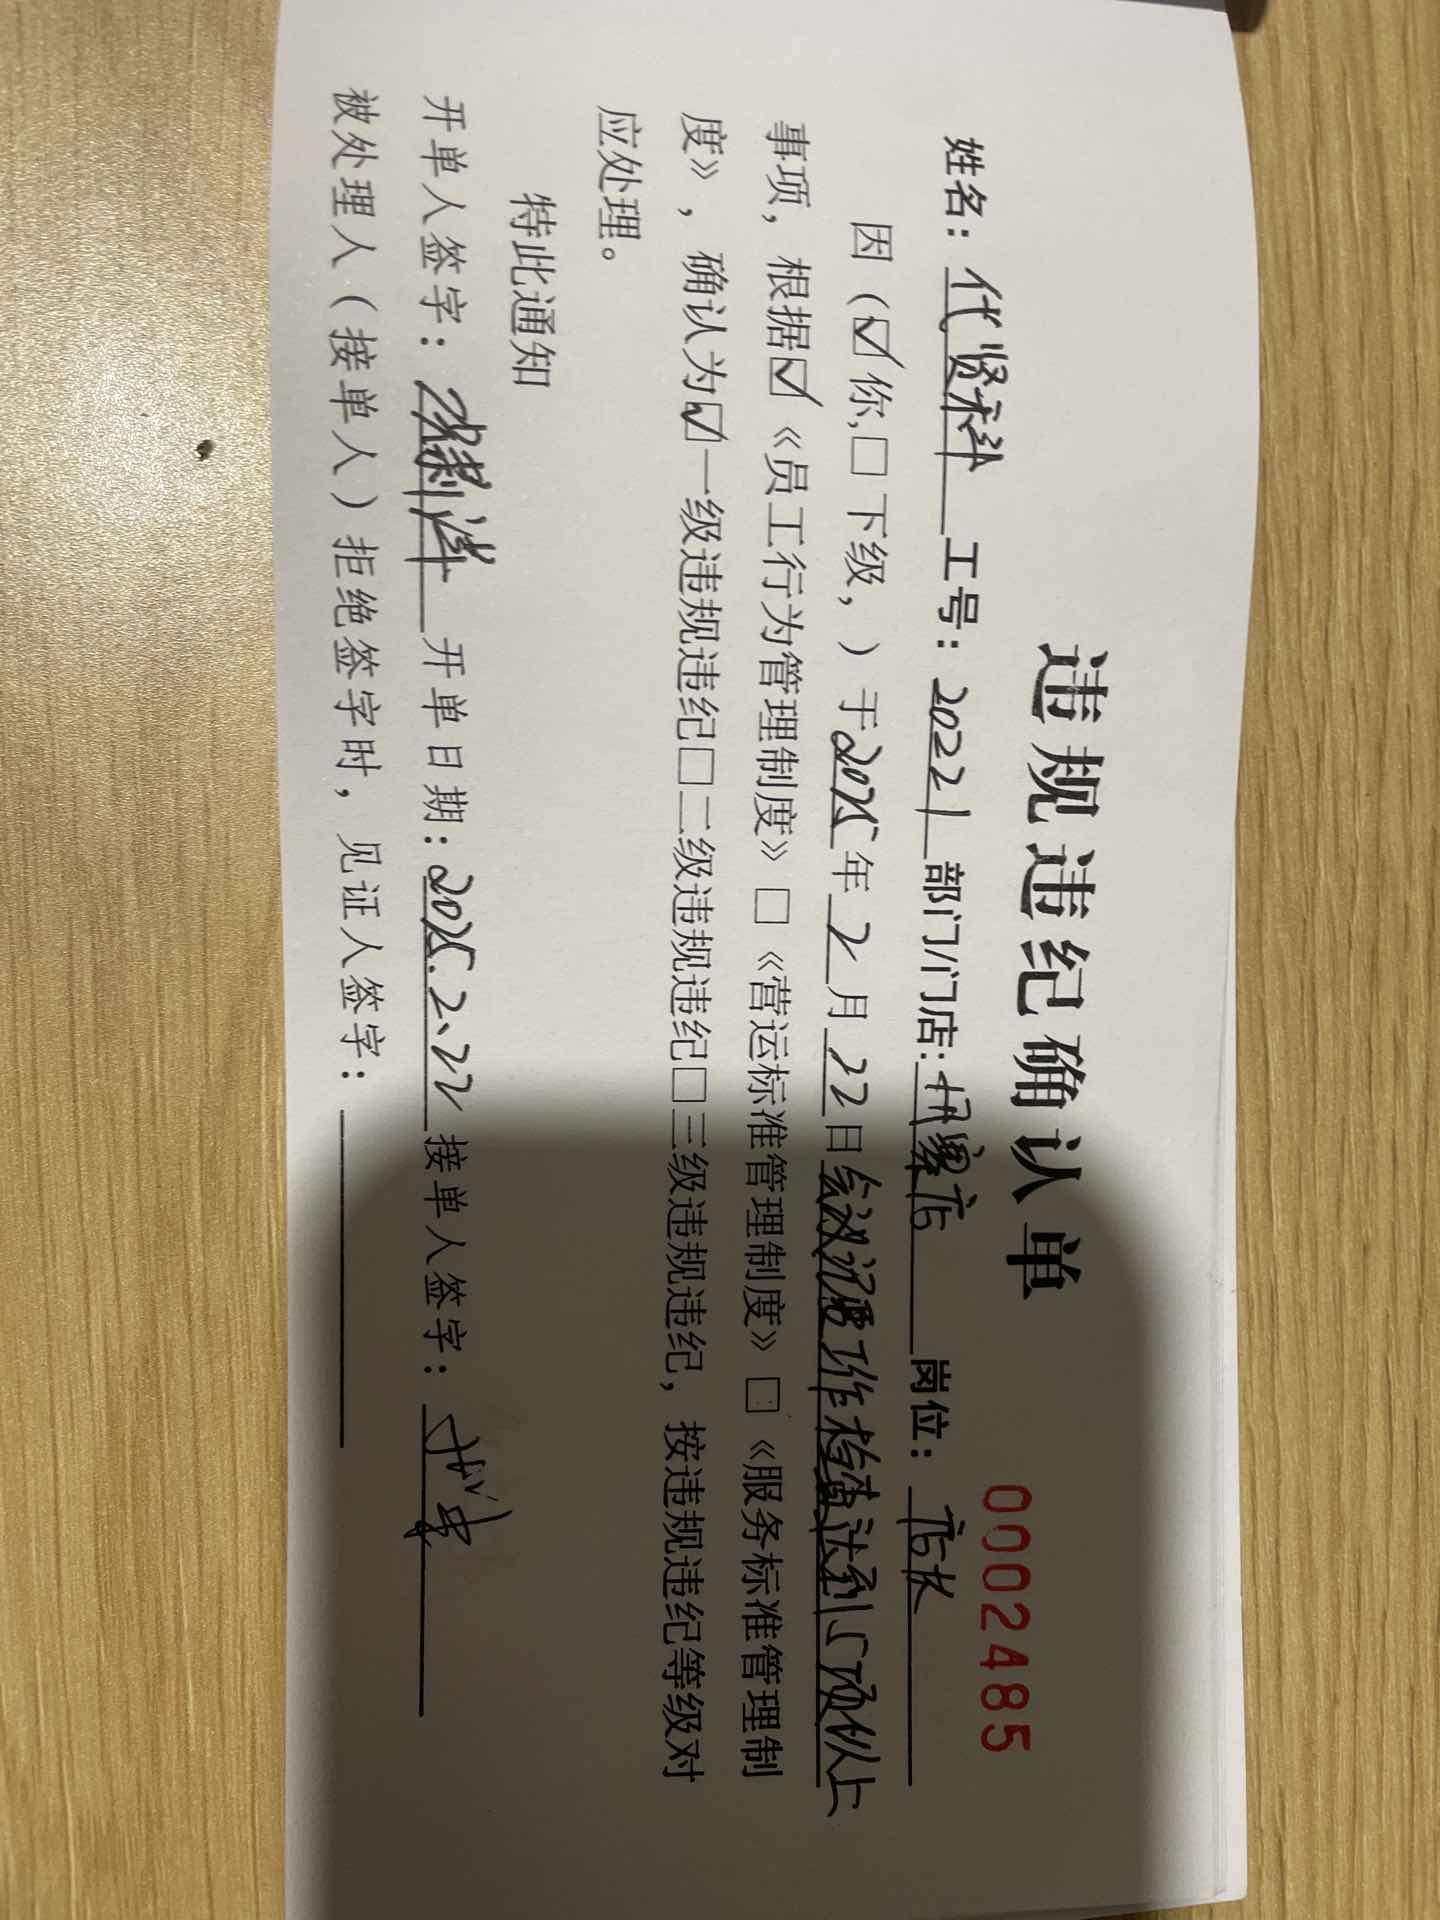 违规违纪确认单
0002485
姓名：代贤 工号：20221 部门/门店： 店 岗位：店长
因（☑你,□下级，）于2025年2月22日 工作 达到5项以上
事项，根据☑《员工行为管理制度》□《营运标准管理制度》□《服务标准管理制
度》，确认为☑一级违规违纪□二级违规违纪□三级违规违纪，按违规违纪等级对
应处理。
特此通知
开单人签字： 开单日期：2025.2.22 接单人签字：
被处理人（接单人）拒绝签字时，见证人签字：